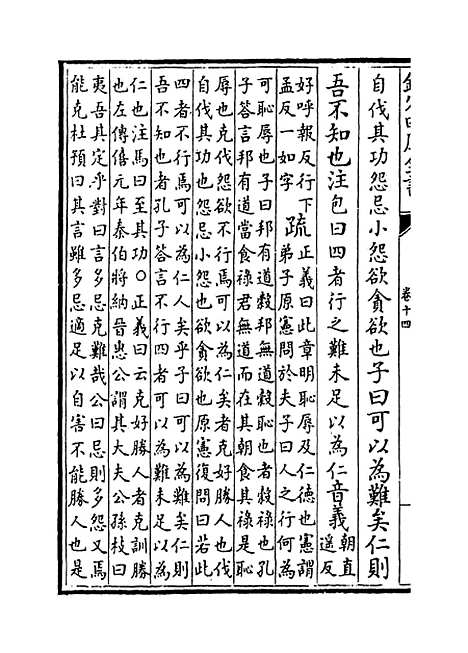 欽定四庫全書
卷十四
自伐其功怨忌小怨欲貪欲也子曰可以為難矣仁則
吾不知也注包曰四者行之難未足以為仁音義朝直
遥反
好呼報反行下
孟反一如字
疏
正義曰此章明恥辱及仁德也憲謂
弟子原憲問於夫子曰人之行何為
可恥辱也子曰邦有道穀邦無道穀恥也者穀祿也孔
子答言邦有道當食祿君無道而在其朝食其祿是恥
辱也克伐怨欲不行焉可以為仁矣者克好勝人也伐
自伐其功也怨忌小怨也欲貪欲也原憲復問曰若此
四者不行焉可以為仁人矣乎子曰可以為難矣仁則
吾不知也者孔子答言不行四者可以為難未足以為
仁也注馬曰至其功○正義曰云克好勝人者克訓勝
也左傳僖元年秦伯將納晉惠公謂其大夫公孫枝曰
夷吾其定乎對曰言多忌克難哉公曰忌則多怨又焉
能克杜預曰其言雖多忌適足以自害不能勝人也是